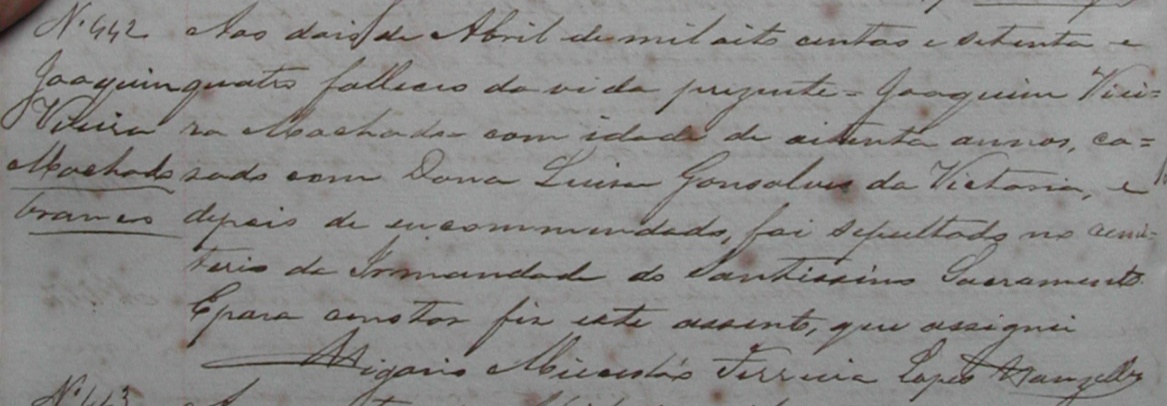 N. 442 Aos dois de Abril de mil oito centos e setenta e
Joaquim quatro falleceo da vida prezente = Joaquim Viei=
Vieira ra Machado = com idade de oitenta annos, ca=
Machado sado com Dona Luisa Gonsalves da Victoria, e
branco depois de encommendado, foi sepultado no cemi-
terio da Irmandade do Santissimo Sacramento.
E para constar fiz este assento, que assignei
Vigario Ferreira Lopes
N. 443